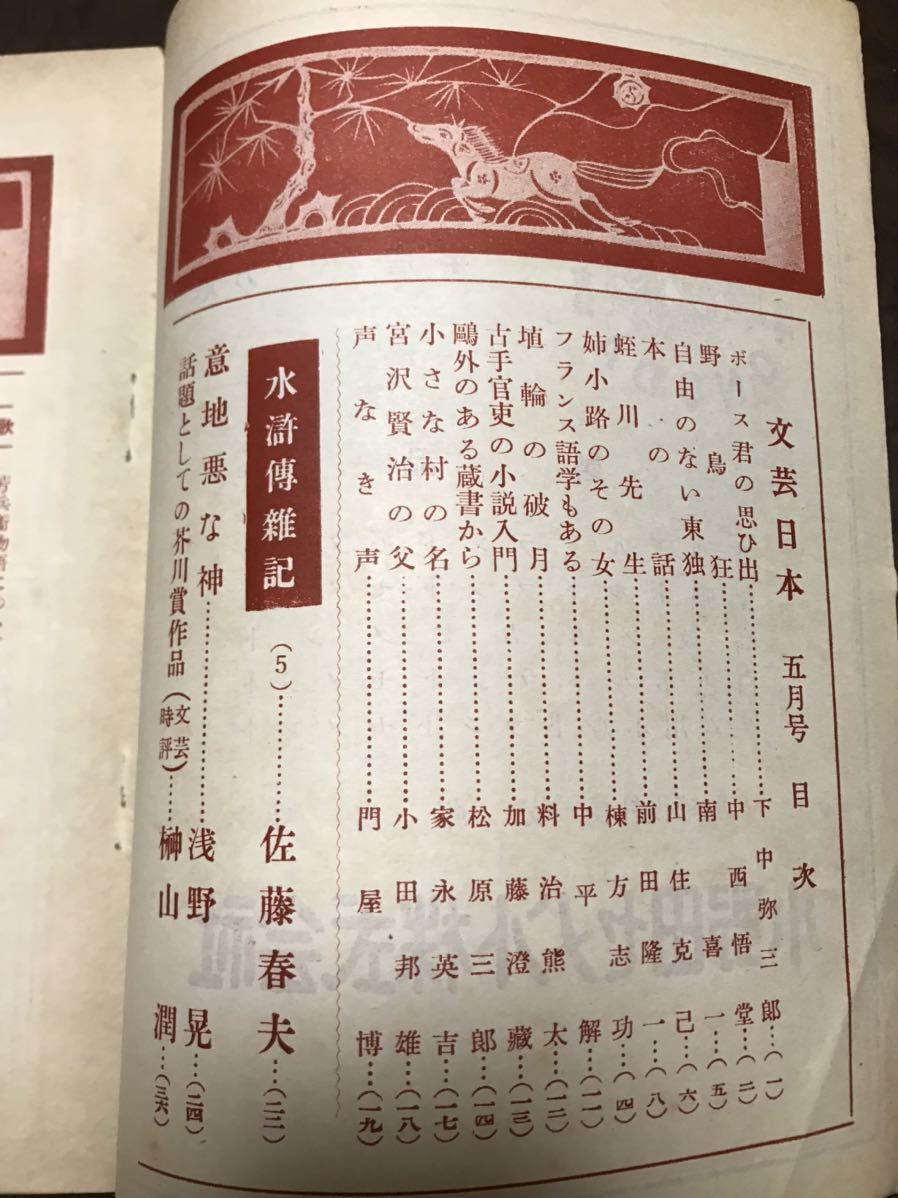 文芸日本 五月号 目次
ボース君の思ひ出……下中弥三郎…(一)
野鳥狂……中西悟堂…(二)
自由のない東独……南喜一…(五)
本の話……山住克己…(六)
蛭川先生……前田隆一…(八)
姉小路のその女……棟方志功…(四)
フランス語学もある……中平解…(一一)
埴輪の破月……料治熊太…(一二)
古手官吏の小説入門……加藤澄藏…(一三)
鷗外のある蔵書から……松原三郎…(一四)
小さな村の名……家永英吉…(一七)
宮沢賢治の父……小田邦雄…(一八)
声なき声……門屋博…(一九)
水滸傳雜記(5)……佐藤春夫…(二二)
意地悪な神……浅野晃…(二四)
話題としての芥川賞作品(文芸時評)……榊山潤…(三六)